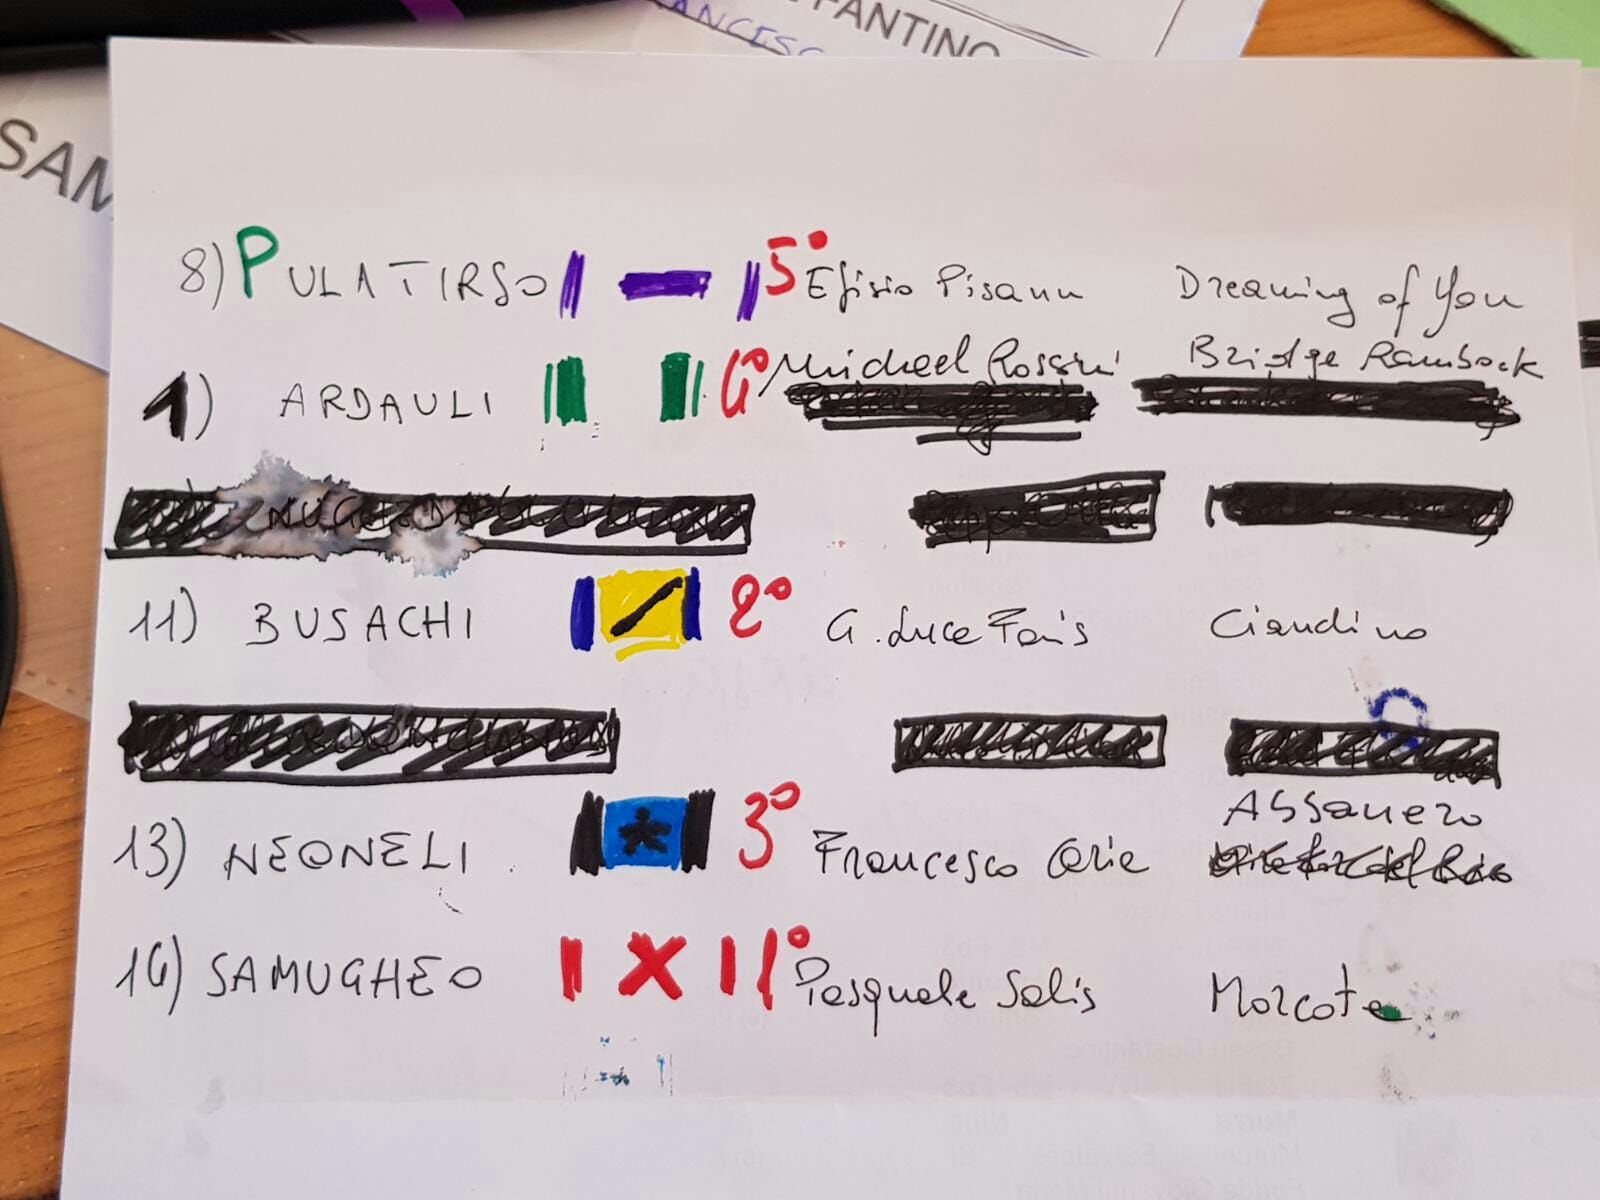 ANCESC
FANTINO
SAM
8) PULATIRSO 5° Efisio Pisanu Dreaming of You
1) ARDAULI 4° Michael Rossini Bridge Rambock
11) BUSACHI 2° G. Luca Fais Ciandino
Assanero
13) NEONELI 3° Francesco
16) SAMUGHEO 1° Pasquale Salis Morcote